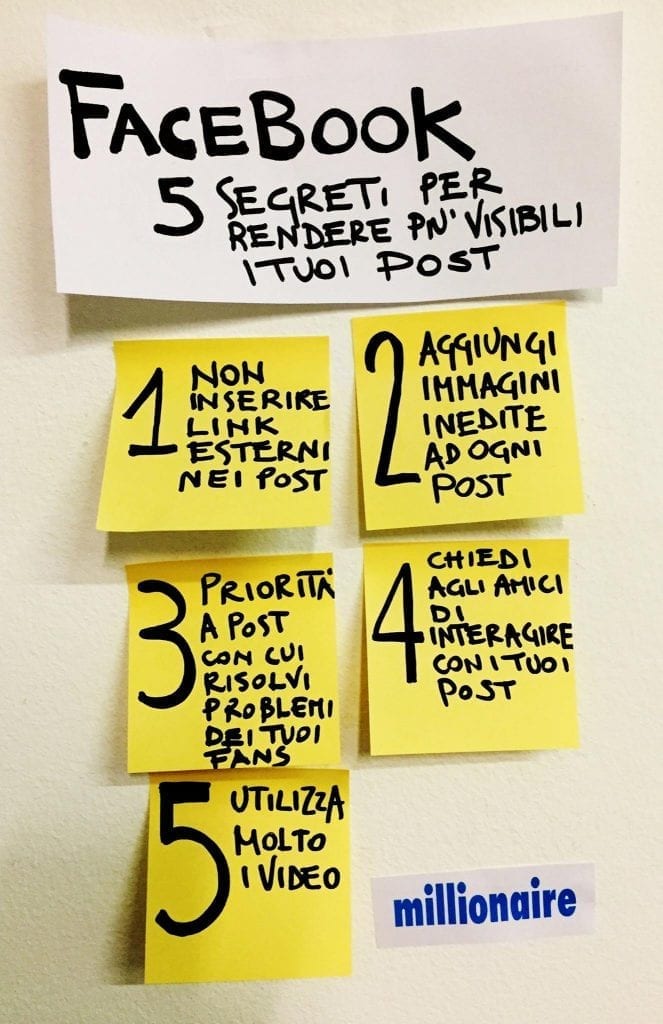 FACEBOOK
5 SEGRETI PER
RENDERE PIU' VISIBILI
I TUOI POST
1 NON
INSERIRE
LINK
ESTERNI
NEI POST
2 AGGIUNGI
IMMAGINI
INEDITE
AD OGNI
POST
3 PRIORITÀ
A POST
CON CUI
RISOLVI
PROBLEMI
DEI TUOI
FANS
4 CHIEDI
AGLI AMICI
DI
INTERAGIRE
CON I TUOI
POST
5 UTILIZZA
MOLTO
I VIDEO
millionaire